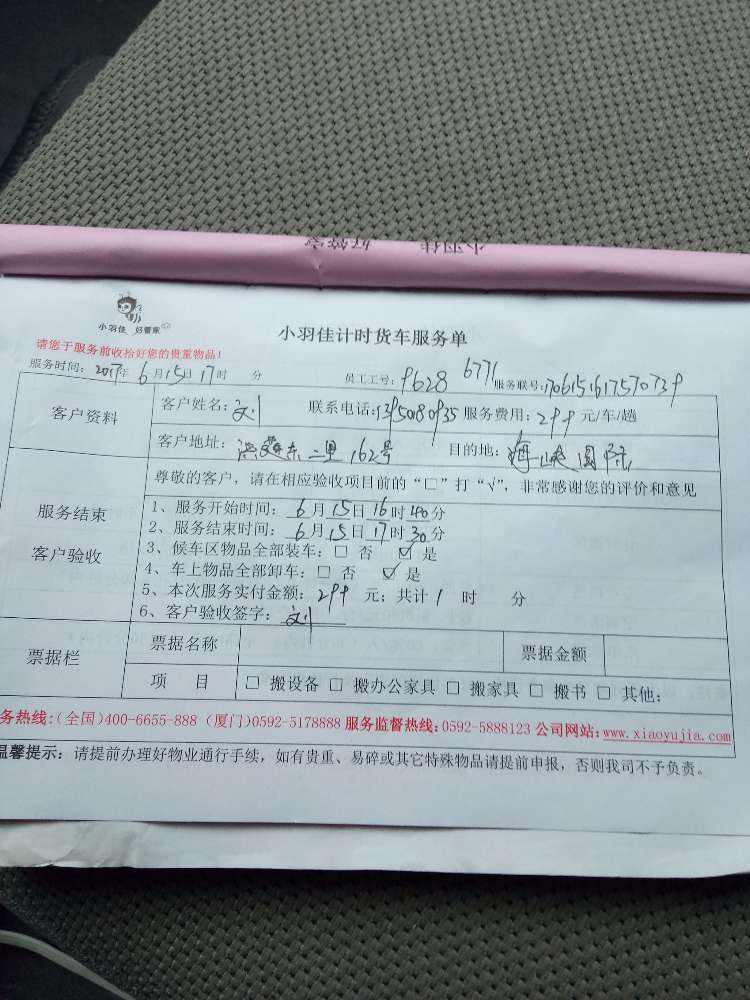 小羽佳 好管家
小羽佳 好管家
小羽佳计时货车服务单
请您于服务前收拾好您的贵重物品!
服务时间: 2017年 6月15日17时 分 员工工号: 9628 6771 服务联号:1706151617570739
客户资料
客户姓名: 刘 联系电话:13950180935 服务费用: 299 元/车/趟
客户地址: 东二里 162号 目的地: 海峡国际
尊敬的客户, 请在相应验收项目前的“□”打“√”, 非常感谢您的评价和意见
服务结束
客户验收
1、服务开始时间: 6月15日16时40分
2、服务结束时间: 6月15日17时30分
3、候车区物品全部装车: □ 否 ☑ 是
4、车上物品全部卸车: □ 否 ☑ 是
5、本次服务实付金额: 299 元; 共计1 时 分
6、客户验收签字: 刘
票据栏
票据名称 票据金额
项 目 □ 搬设备 □ 搬办公家具 □ 搬家具 □ 搬书 □ 其他:
务热线:(全国)400-6655-888 (厦门)0592-5178888 服务监督热线:0592-5888123 公司网站:www.xiaoyujia.com
温馨提示: 请提前办理好物业通行手续, 如有贵重、易碎或其它特殊物品请提前申报, 否则我司不予负责。